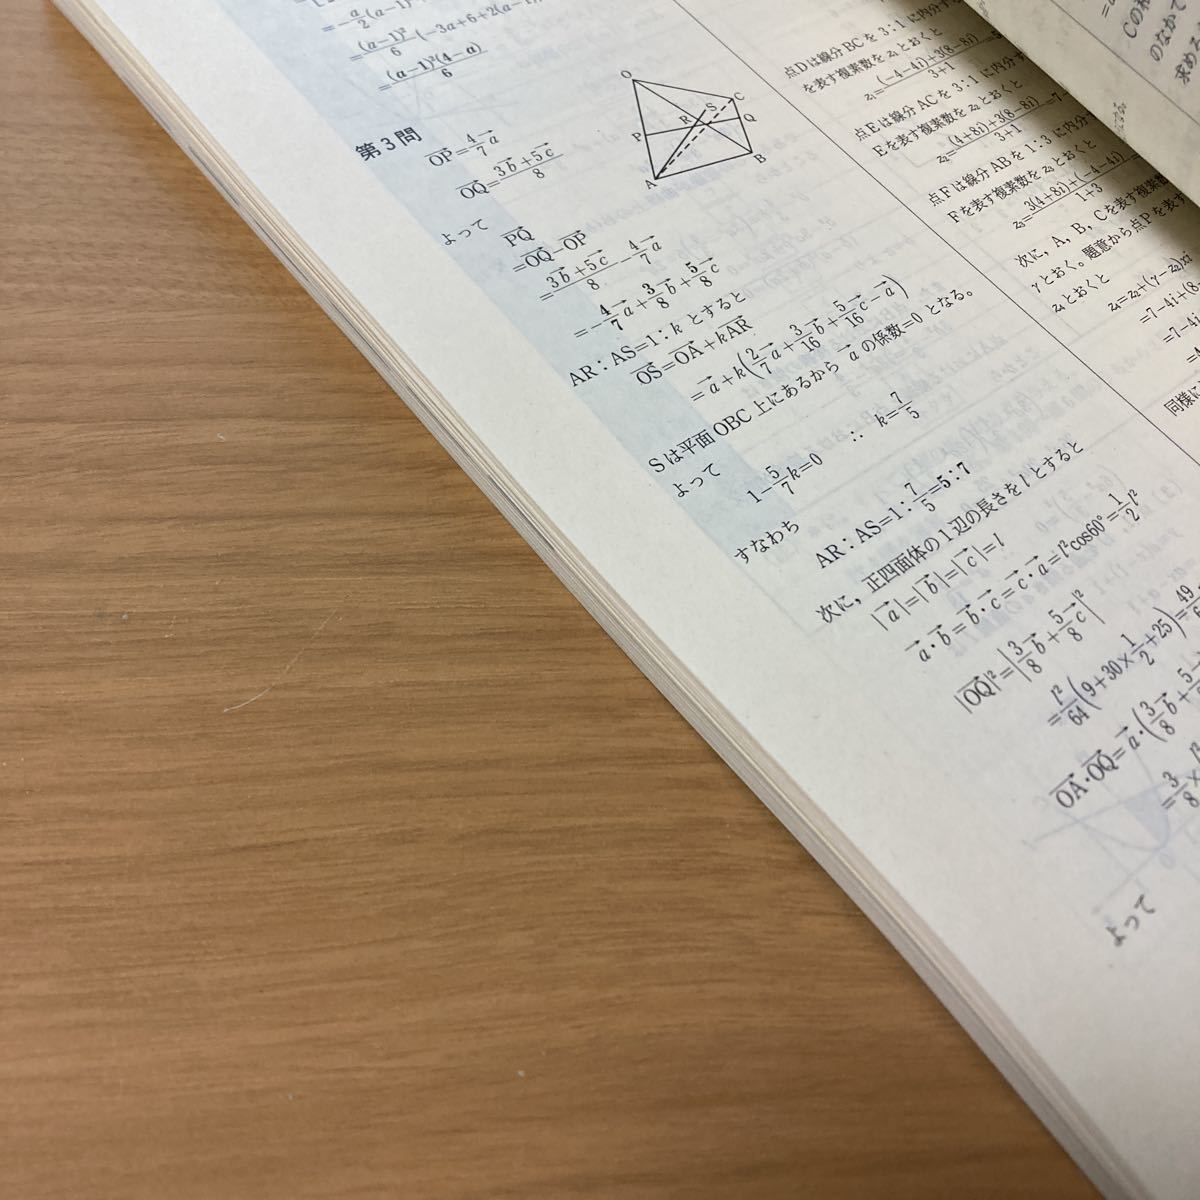 =-a/2(a-1)²
=(a-1)²/6(-3a+6+2(a-1)
=(a-1)²(4-a)/6
第3問
O
P
R
S
C
Q
A
B
OP→=4/7a→
OQ→=(3b→+5c→)/8
よって
PQ→
=OQ→-OP→
=(3b→+5c→)/8-4/7a→
=-4/7a→+3/8b→+5/8c→
AR:AS=1:kとすると
OS→=OA→+kAR→
=a→+k(2/7a→+3/16b→+5/16c→-a→)
Sは平面OBC上にあるからa→の係数=0となる。
よって
1-5/7k=0 ∴ k=7/5
すなわち
AR:AS=1:7/5=5:7
次に,正四面体の1辺の長さをlとすると
|a→|=|b→|=|c→|=l
a→・b→=b→・c→=c→・a→=l²cos60°=1/2l²
|OQ→|²=|3/8b→+5/8c→|²
=l²/64(9+30×1/2+25)=49
OA→・OQ→=a→・(3/8b→+5
=3/8×
よって
点Dは線分BCを3:1に内分す
を表す複素数をz₁とおくと
z₁=((-4-4i)+3(8-8i))/(3+1)
点Eは線分ACを3:1に内分
Eを表す複素数をz₂とおくと
z₂=((4+8i)+3(8-8i))/(3+1)=7-
点Fは線分ABを1:3に内分
Fを表す複素数をz₃とおくと
z₃=(3(4+8i)+(-4-4i))/(1+3)
次に,A,B,Cを表す複素数
γとおく。題意から点Pを表す
z₄とおくと
z₄=z₂+(γ-z₂)
=7-4i+(8-
=7-4i
同様に
Cの
のなかで
求める